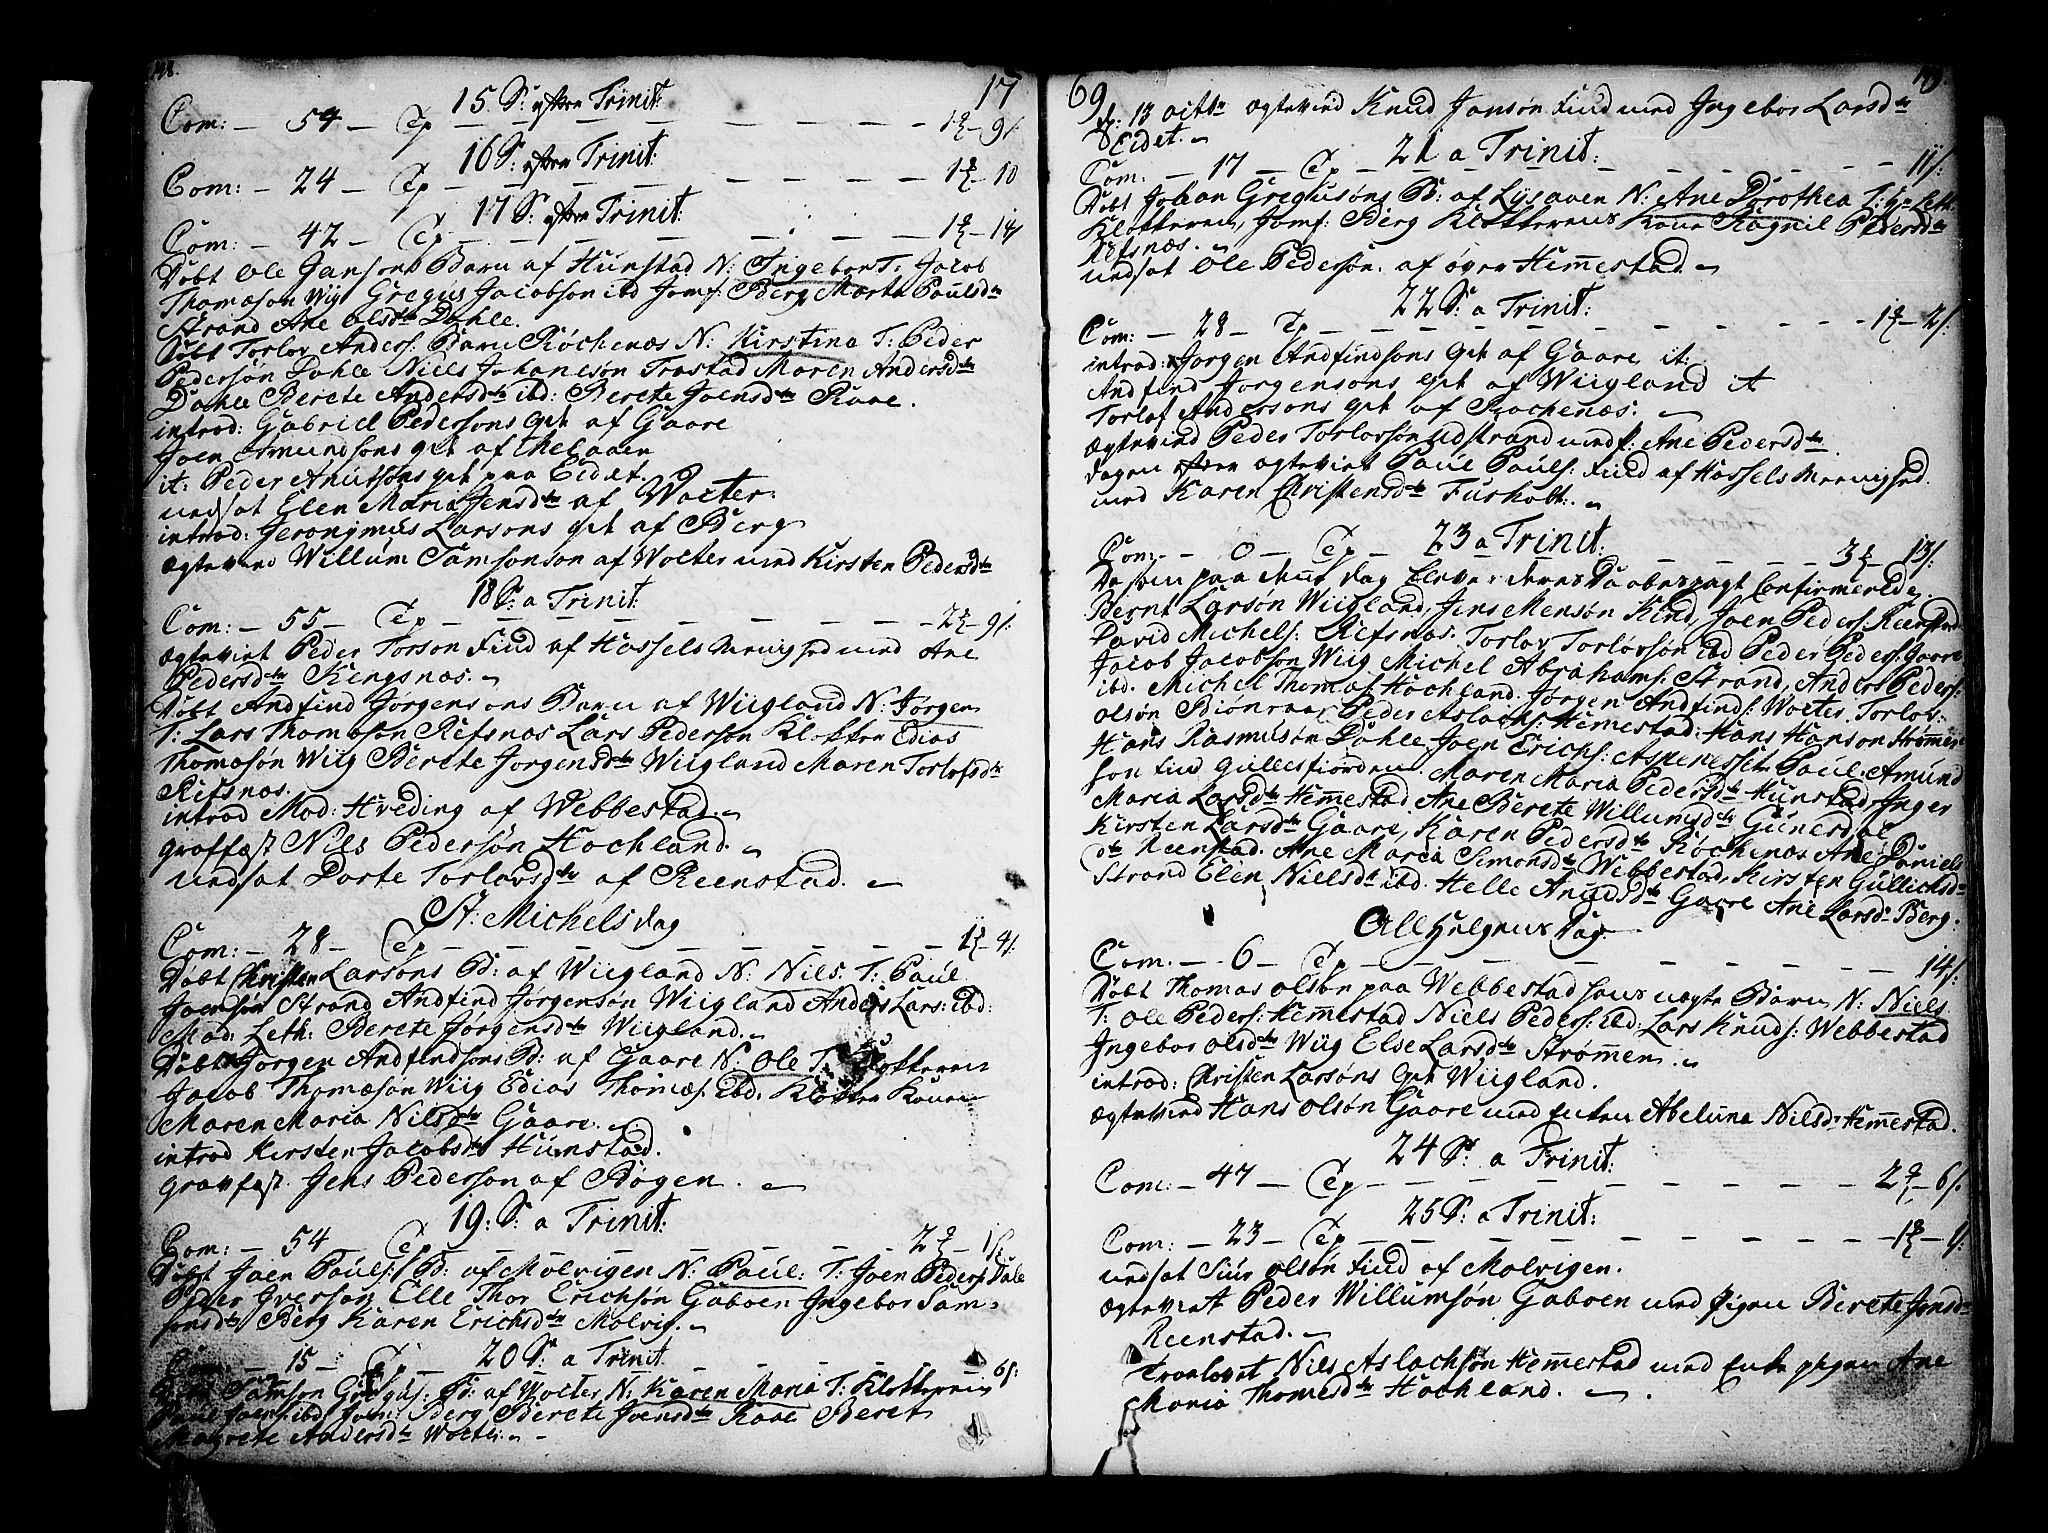 148. 17
15 S: efter Trinit:
Com: — 54 — Cep — 9/.
16 S: efter Trinit:
Com: — 24 — Cep — 10
17 S: efter Trinit:
Com: — 42 — Cep — 14/
Døbt Ole Jansøns Barn af Hunstad N: Ingebor T: Jacob
Thomæsøn Wiig Gregus Jacobsøn ibd Jomf: Berg Marta Paulsdtr
Strand Ane Olsdtr Dahle.
Døbt Torlov Anders: Barn Rochenæs N: Kirstina T: Peder
Pedersøn Dahle Niels Johansøn Trastad Maren Andersdtr
Dahle Berete Andersdtr ibd: Berete Joensdtr Raae.
introd: Gabriel Pedersøns qvt af Gaare
Joen Amundsøns qvt af
it: Peder Anutsøns qvt paa Eidet.
undsat Elen Maria Jensdtr af Wolter:
introd: Jeronymus Larsøns qvt af Berg
Ægtevied Willum Samsonsøn af Wolter med Kirsten Pedersdtr
18 S: a Trinit:
Com: — 55 — Cep — 2 — 9/.
Ægteviet Peder Torsøn Find af Hassels Menighed med Ane
Pedersdtr Kengsnæs.
Døbt Andfind Jørgensøns Barn af Wiigland N: Jørgen
T: Lars Thomæsøn Refsnæs Lars Pedersøn Klokker Edias
Thomæsøn Wiig Berete Jørgensdtr Wiigland Maren Torlofsdtr
Refsnæs.
introd Mad: Hveding af Webbestad.
graffæst Niels Pedersøn Hochland.
undsat Dorte Torlovsdtr af Reenstad.
St: Michels dag
Com: — 28 — Cep — 4/.
Døbt Christen Larsøns B: af Wiigland N: Niels. T: Paul
Joensøn Strand Andfind Jørgensøn Wiigland Anders Lars: ibd:
Mad: Leth: Berete Jørgensdtr Wiigland.
Døbt Jørgen Andfindsøns B: af Gaare N: Ole T: Klokkeren
Jacob Thomæsøn Wiig Edias Thomæs: ibd. Klokker Konen
Maren Maria Nilsdtr Gaare.
introd Kirsten Jacobsdtr Hunstad.
gravfæst. Jens Pedersøn af Bøgen.
19: S: a Trinit:
Com: — 54 Cep — 2
Døbt Joen Pauls: B: af Molvigen N: Paul: T: Joen Peders Dale
Peder Iversøn Elle Thor Erichsøn Gaboen Ingebor Sam-
sonsdtr Berg Karen Erichsdtr Molvig.
20 S: a Trinit
Com: — 15 — Cep — 6/:
Døbt Samson Gregus: B: af Wolter N: Karen Maria T: Klokkeren
Paul Joens: ibd Jom: Berg Berete Joensdtr Raae Beret
Magrete Andersdtr Wolter.
69 149.
d: 13 octbr Ægtevied Knud Jansøn Find med Ingebor Larsdtr
Eidet.
21 a Trinit:
Com. — 17 — Cep — 11/.
Døbt Johan Gregusøns B: af Lysaaen N: Ane Dorothea T: Hr Leth.
Klokkeren, Jomf: Berg Klokkerens Kone Ragnil Pedersdtr
Refsnæs.
undsat Ole Pedersøn. af øvre Hemestad.
22 S: a Trinit:
Com: — 28 — Cep — 2/.
introd: Jørgen Andfindsøns qvt af Gaare it:
Andfind Jørgensøns qvt af Wiigland it
Torlof Andersøns qvt af Rochenæs.
Ægtevied Peder Torlovsøn Udstrand med p: Ane Pedersdtr.
dagen efter ægteviet Paul Pauls: Find af Hassels Menighed.
med Karen Christensdtr Fuskolt.
23 a Trinit:
Com: — 0 — Cep — 3 — 13/.
Bernt Larsøn Wiigland, Jens Mensøn Kind, Joen Peders: Reenstad.
David Michels: Refsnæs. Torlov Torlovsøn ibd Peder Peders: Gaare
Jacob Jacobsøn Wiig Michel Abrahams: Strand, Anders Peders:
ibd. Michel Thomæs: Hochland. Jørgen Andfinds: Wolter. Torlov:
Olsøn Biønraa, Peder Aslachs: Hemestad: Hans Hansøn Strømme
Hans Rasmusøn Dahle, Joen Erichs: Aspenesset Paul Amund
søn Find Gullesfiorden. Maren Maria Pedersdtr Hunstad Inger
Maria Larsdtr Hemestad Ane Berete Willumsdtr Gunesdal
Kirsten Larsdtr Gaare, Karen Pedersdtr Rochenæs Ane Daniels
dtr Reenstad. Ane Maria Simonsdtr Webbestad, Kirsten Gullichsdtr
Strand Elen Nielsdtr ibd. Helle Anudsdtr Gaare Ane Larsdtr Berg.
All Helgens Dag.
Com. — 6 — Cep — 14/.
Døbt Thomas Olsøn paa Webbestad hans uægte Barn N: Niels
T: Ole Peders: Hemestad Niels Peders: ibd: Lars Knuds: Webbestad
Ingebor Olsdtr Wiig Else Larsdtr Strømmen.
introd: Christen Larsøns qvt Wiigland.
Ægtevied Hans Olsøn Gaare med Enken Abeluna Nilsdtr Hemestad.
24 S: a Trinit:
Com: — 47 — Cep — 2 — 6/.
25 S: a Trinit:
Com: — 23 — Cep
undsat Siur Olsøn Find af Molvigen.
Ægteviet Peder Willumsøn Gaboen med Pigen Berete Jonsdtr
Reenstad.
Trolovet Niels Aslachsøn Hemestad med Enke pigen Ane
Maria Thomesdtr Hochland.